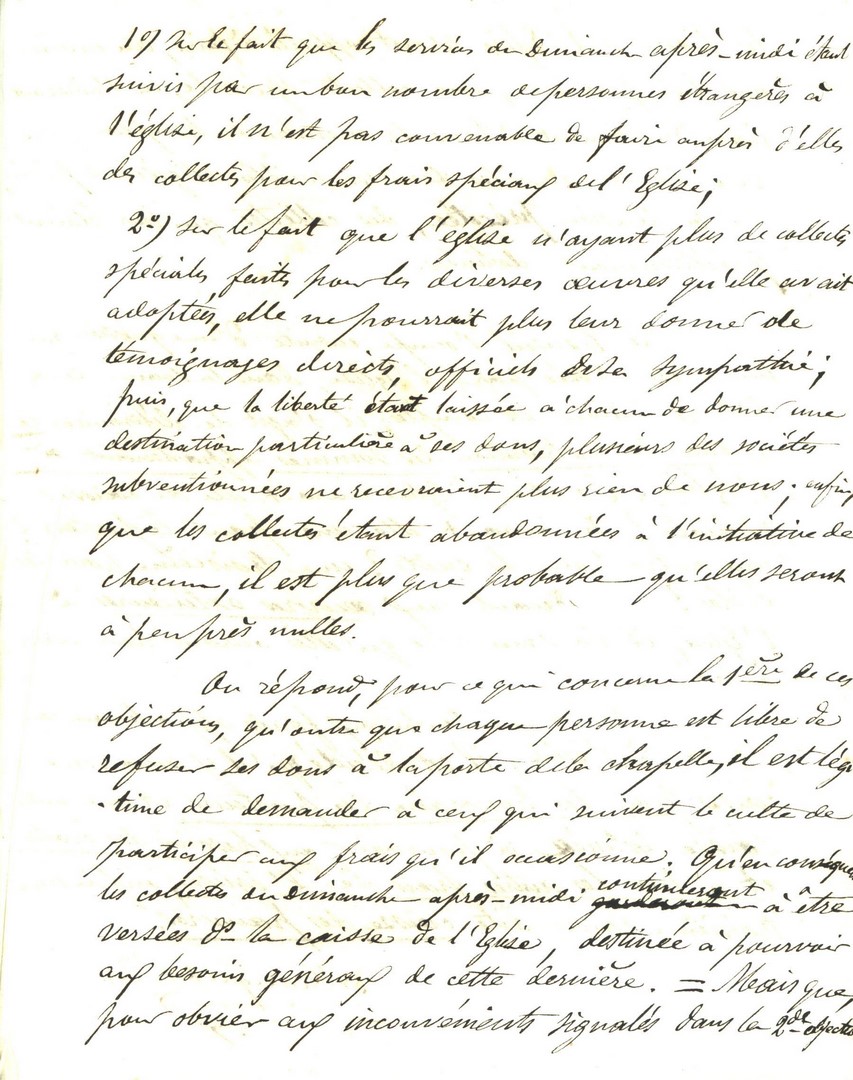 1º) sur le fait que les services du Dimanche après-midi étant
suivis par un bon nombre de personnes étrangères à
l'église, il n'est pas convenable de faire auprès d'elles
des collectes pour les frais spéciaux de l'Eglise;
2º) sur le fait que l'église n'ayant plus de collectes
spéciales faites pour les diverses œuvres qu'elle avait
adoptées, elle ne pourrait plus leur donner de
témoignages directs, officiels de sa sympathie;
puis, que la liberté étant laissée à chacun de donner une
destination particulière à ses dons, plusieurs des sociétés
subventionnées ne recevraient plus rien de nous; enfin,
que les collectes étant abandonnées à l'initiative de
chacun, il est plus que probable qu'elles seront
à peu près nulles.
On répond, pour ce qui concerne la 1ère de ces
objections, qu'outre que chaque personne est libre de
refuser ses dons à la porte de la chapelle, il est légi
-time de demander à ceux qui suivent le culte de
participer aux frais qu'il occasionne. Qu'en conséquen
les collectes du Dimanche après-midi continueront à être
versées ds la caisse de l'Eglise, destinée à pourvoir
aux besoins généraux de cette dernière. = Mais que,
pour obvier aux inconvénients signalés dans la 2de objectio